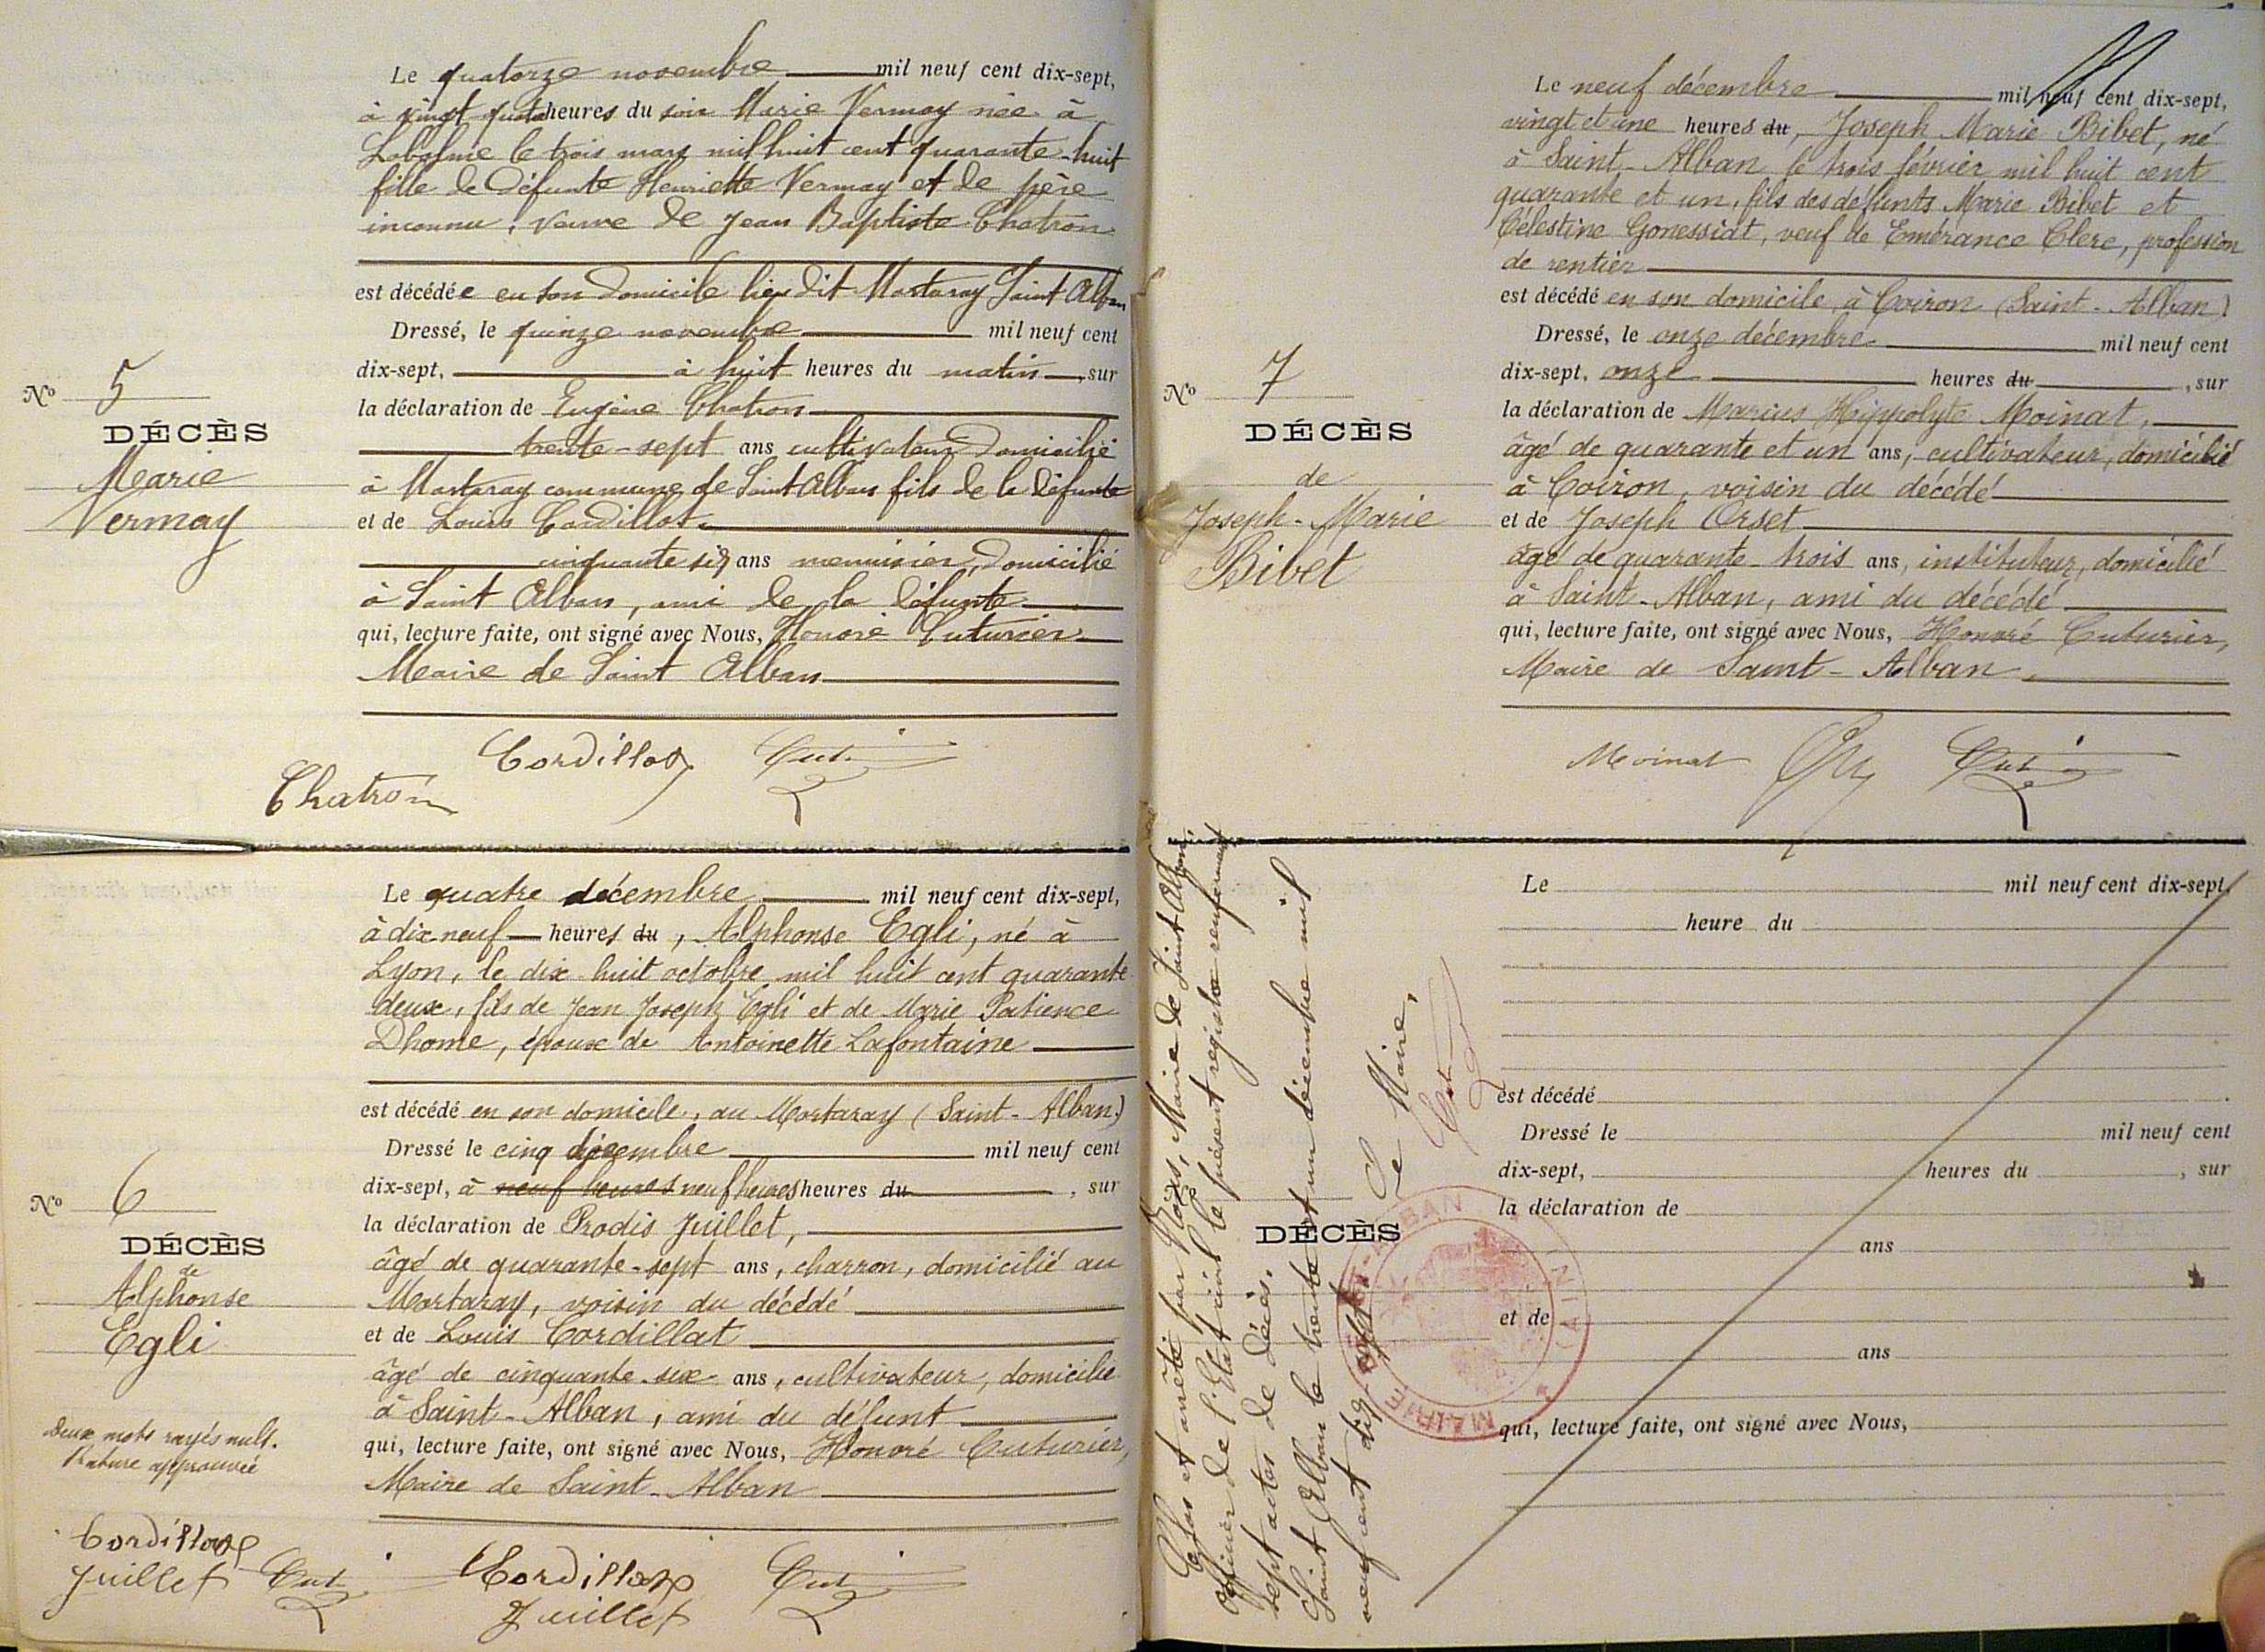 Le quatorze novembre mil neuf cent dix-sept,
à vingt quatre heures du soir Marie Vermay née à
Labalme le trois mars mil huit cent quarante-huit
fille de défunte Henriette Vermay et de père
inconnu, veuve de Jean Baptiste Chatron
est décédée en son domicile lieu dit Mortaray Saint Alban
Dressé, le quinze novembre mil neuf cent
dix-sept, à huit heures du matin, sur
la déclaration de Eugène Chatron
trente-sept ans cultivateur domicilié
à Mortaray commune de Saint Alban fils de la défunte
et de Louis Cordillat
cinquante six ans menuisier, domicilié
à Saint Alban, ami de la défunte
qui, lecture faite, ont signé avec Nous, Honoré Cuturier
Maire de Saint Alban
No 5
DÉCÈS
Marie
Vermay
Cordillat
Chatron
Le quatre décembre mil neuf cent dix-sept,
à dix-neuf heures du, Alphonse Egli, né à
Lyon, le dix huit octobre mil huit cent quarante
deux, fils de Jean Joseph Egli et de Marie Patience
Dhome, époux de Antoinette Lafontaine
est décédé en son domicile, au Mortaray (Saint-Alban)
Dressé le cinq décembre mil neuf cent
dix-sept, à neuf heures neuf heures heures du, sur
la déclaration de Prodis Juillet,
âgé de quarante-sept ans, charron, domicilié au
Mortaray, voisin du décédé
et de Louis Cordillat
âgé de cinquante-six ans, cultivateur, domicilié
à Saint-Alban, ami du défunt
qui, lecture faite, ont signé avec Nous, Honoré Cuturier,
Maire de Saint-Alban
No 6
DÉCÈS
de
Alphonse
Egli
Deux mots rayés nuls.
Rature approuvée
Cordillat
Juillet Cut
Cordillat Cut
Juillet
Le neuf décembre mil neuf cent dix-sept,
vingt et une heures du, Joseph Marie Bibet, né
à Saint-Alban le trois février mil huit cent
quarante et un, fils des défunts Marie Bibet et
Célestine Gonessiat, veuf de Emérance Clerc, profession
de rentier
est décédé en son domicile, à Coiron (Saint-Alban)
Dressé, le onze décembre mil neuf cent
dix-sept, onze heures du, sur
la déclaration de Marius Hippolyte Moinat,
âgé de quarante et un ans, cultivateur, domicilié
à Coiron, voisin du décédé
et de Joseph Orset
âgé de quarante-trois ans, instituteur, domicilié
à Saint-Alban, ami du décédé
qui, lecture faite, ont signé avec Nous, Honoré Cuturier,
Maire de Saint-Alban.
No 7
DÉCÈS
de
Joseph-Marie
Bibet
Moinat
Clos et arrêté par Nous, Maire de Saint Alban,
officier de l'Etat civil le présent registre renfermant
sept actes de décès.
Saint Alban le trente et un décembre mil
neuf cent dix-sept
Le Maire,
MAIRIE DE SAINT-ALBAN (AIN)
Le mil neuf cent dix-sept,
heure du
est décédé
Dressé le mil neuf cent
dix-sept, heures du, sur
la déclaration de
ans
et de
ans
qui, lecture faite, ont signé avec Nous,
DÉCÈS